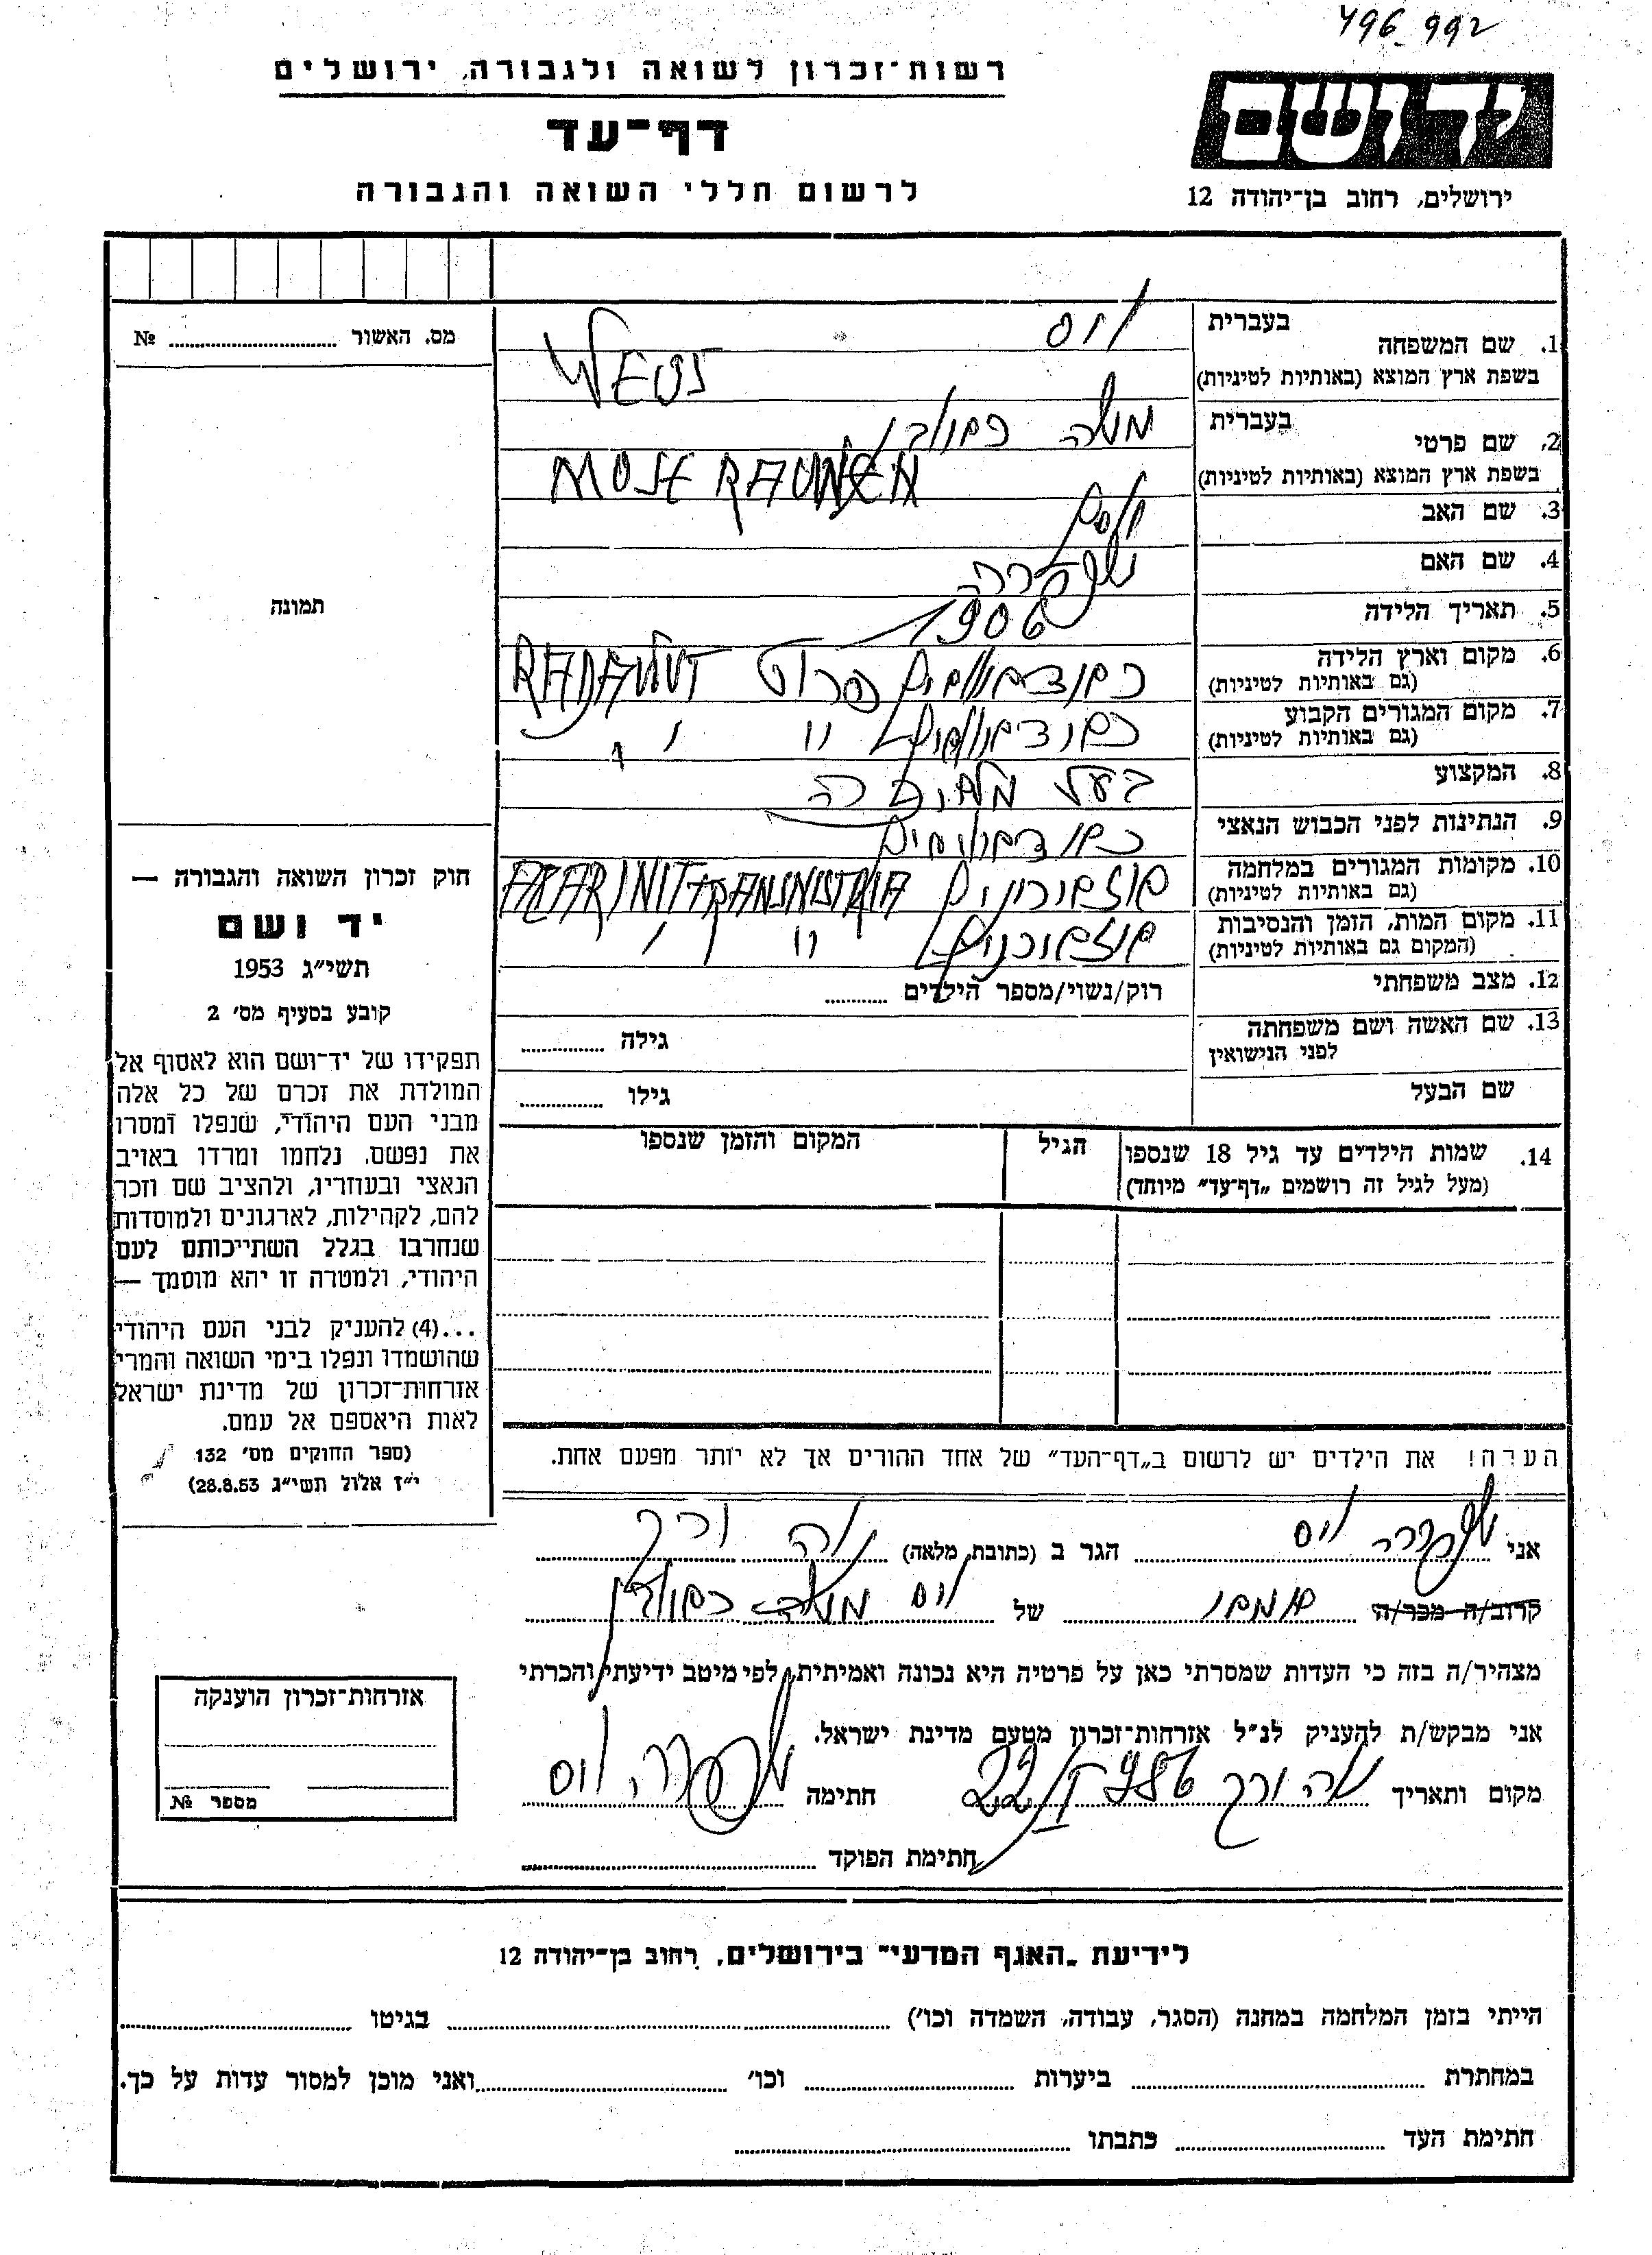 496_992
רשות־זכרון לשואה ולגבורה, ירושלים
יד ושם
דף־עד
לרשום חללי השואה והגבורה
ירושלים, רחוב בן־יהודה 12
מס. האשור № ............
1. שם המשפחה בעברית
ויס
בשפת ארץ המוצא (באותיות לטיניות)
2. שם פרטי בעברית
משה
בשפת ארץ המוצא (באותיות לטיניות) MOSE
3. שם האב
4. שם האם
5. תאריך הלידה 1906
6. מקום וארץ הלידה
(גם באותיות לטיניות) RADAWUT
7. מקום המגורים הקבוע
(גם באותיות לטיניות) " "
8. המקצוע בעל
9. הנתינות לפני הכבוש הנאצי
10. מקומות המגורים במלחמה
(גם באותיות לטיניות)
11. מקום המות, הזמן והנסיבות
(המקום גם באותיות לטיניות) " "
12. מצב משפחתי רוק/נשוי/מספר הילדים ............
13. שם האשה ושם משפחתה
לפני הנישואין
גילה ............
שם הבעל גילו ............
14. שמות הילדים עד גיל 18 שנספו
(מעל לגיל זה רושמים „דף־עד” מיוחד)
הגיל
המקום והזמן שנספו
תמונה
חוק זכרון השואה והגבורה —
יד ושם
תשי״ג 1953
קובע בסעיף מס׳ 2
תפקידו של יד־ושם הוא לאסוף אל
המולדת את זכרם של כל אלה
מבני העם היהודי, שנפלו ומסרו
את נפשם, נלחמו ומרדו באויב
הנאצי ובעוזריו, ולהציב שם וזכר
להם, לקהילות, לארגונים ולמוסדות
שנחרבו בגלל השתייכותם לעם
היהודי, ולמטרה זו יהא מוסמך —
...(4) להעניק לבני העם היהודי
שהושמדו ונפלו בימי השואה והמרי
אזרחות־זכרון של מדינת ישראל
לאות היאספם אל עמם.
(ספר החוקים מס׳ 132
י״ז אלול תשי״ג 28.8.53)
הערה! את הילדים יש לרשום ב„דף־העד” של אחד ההורים אך לא יותר מפעם אחת.
אני ויס הגר ב (כתובת מלאה) נוה ורך
קרוב/ה מכר/ה של ויס משה
מצהיר/ה בזה כי העדות שמסרתי כאן על פרטיה היא נכונה ואמיתית, לפי מיטב ידיעתי והכרתי
אני מבקש/ת להעניק לנ״ל אזרחות־זכרון מטעם מדינת ישראל.
מקום ותאריך נוה ורך חתימה ויס
חתימת הפוקד ............
אזרחות־זכרון הוענקה
מספר №
לידיעת „האגף המדעי” בירושלים, רחוב בן־יהודה 12
הייתי בזמן המלחמה במחנה (הסגר, עבודה, השמדה וכו׳) ............ בגיטו ............
במחתרת ............ ביערות ............ וכו׳ ............ ואני מוכן למסור עדות על כך.
חתימת העד ............ כתבתו ............